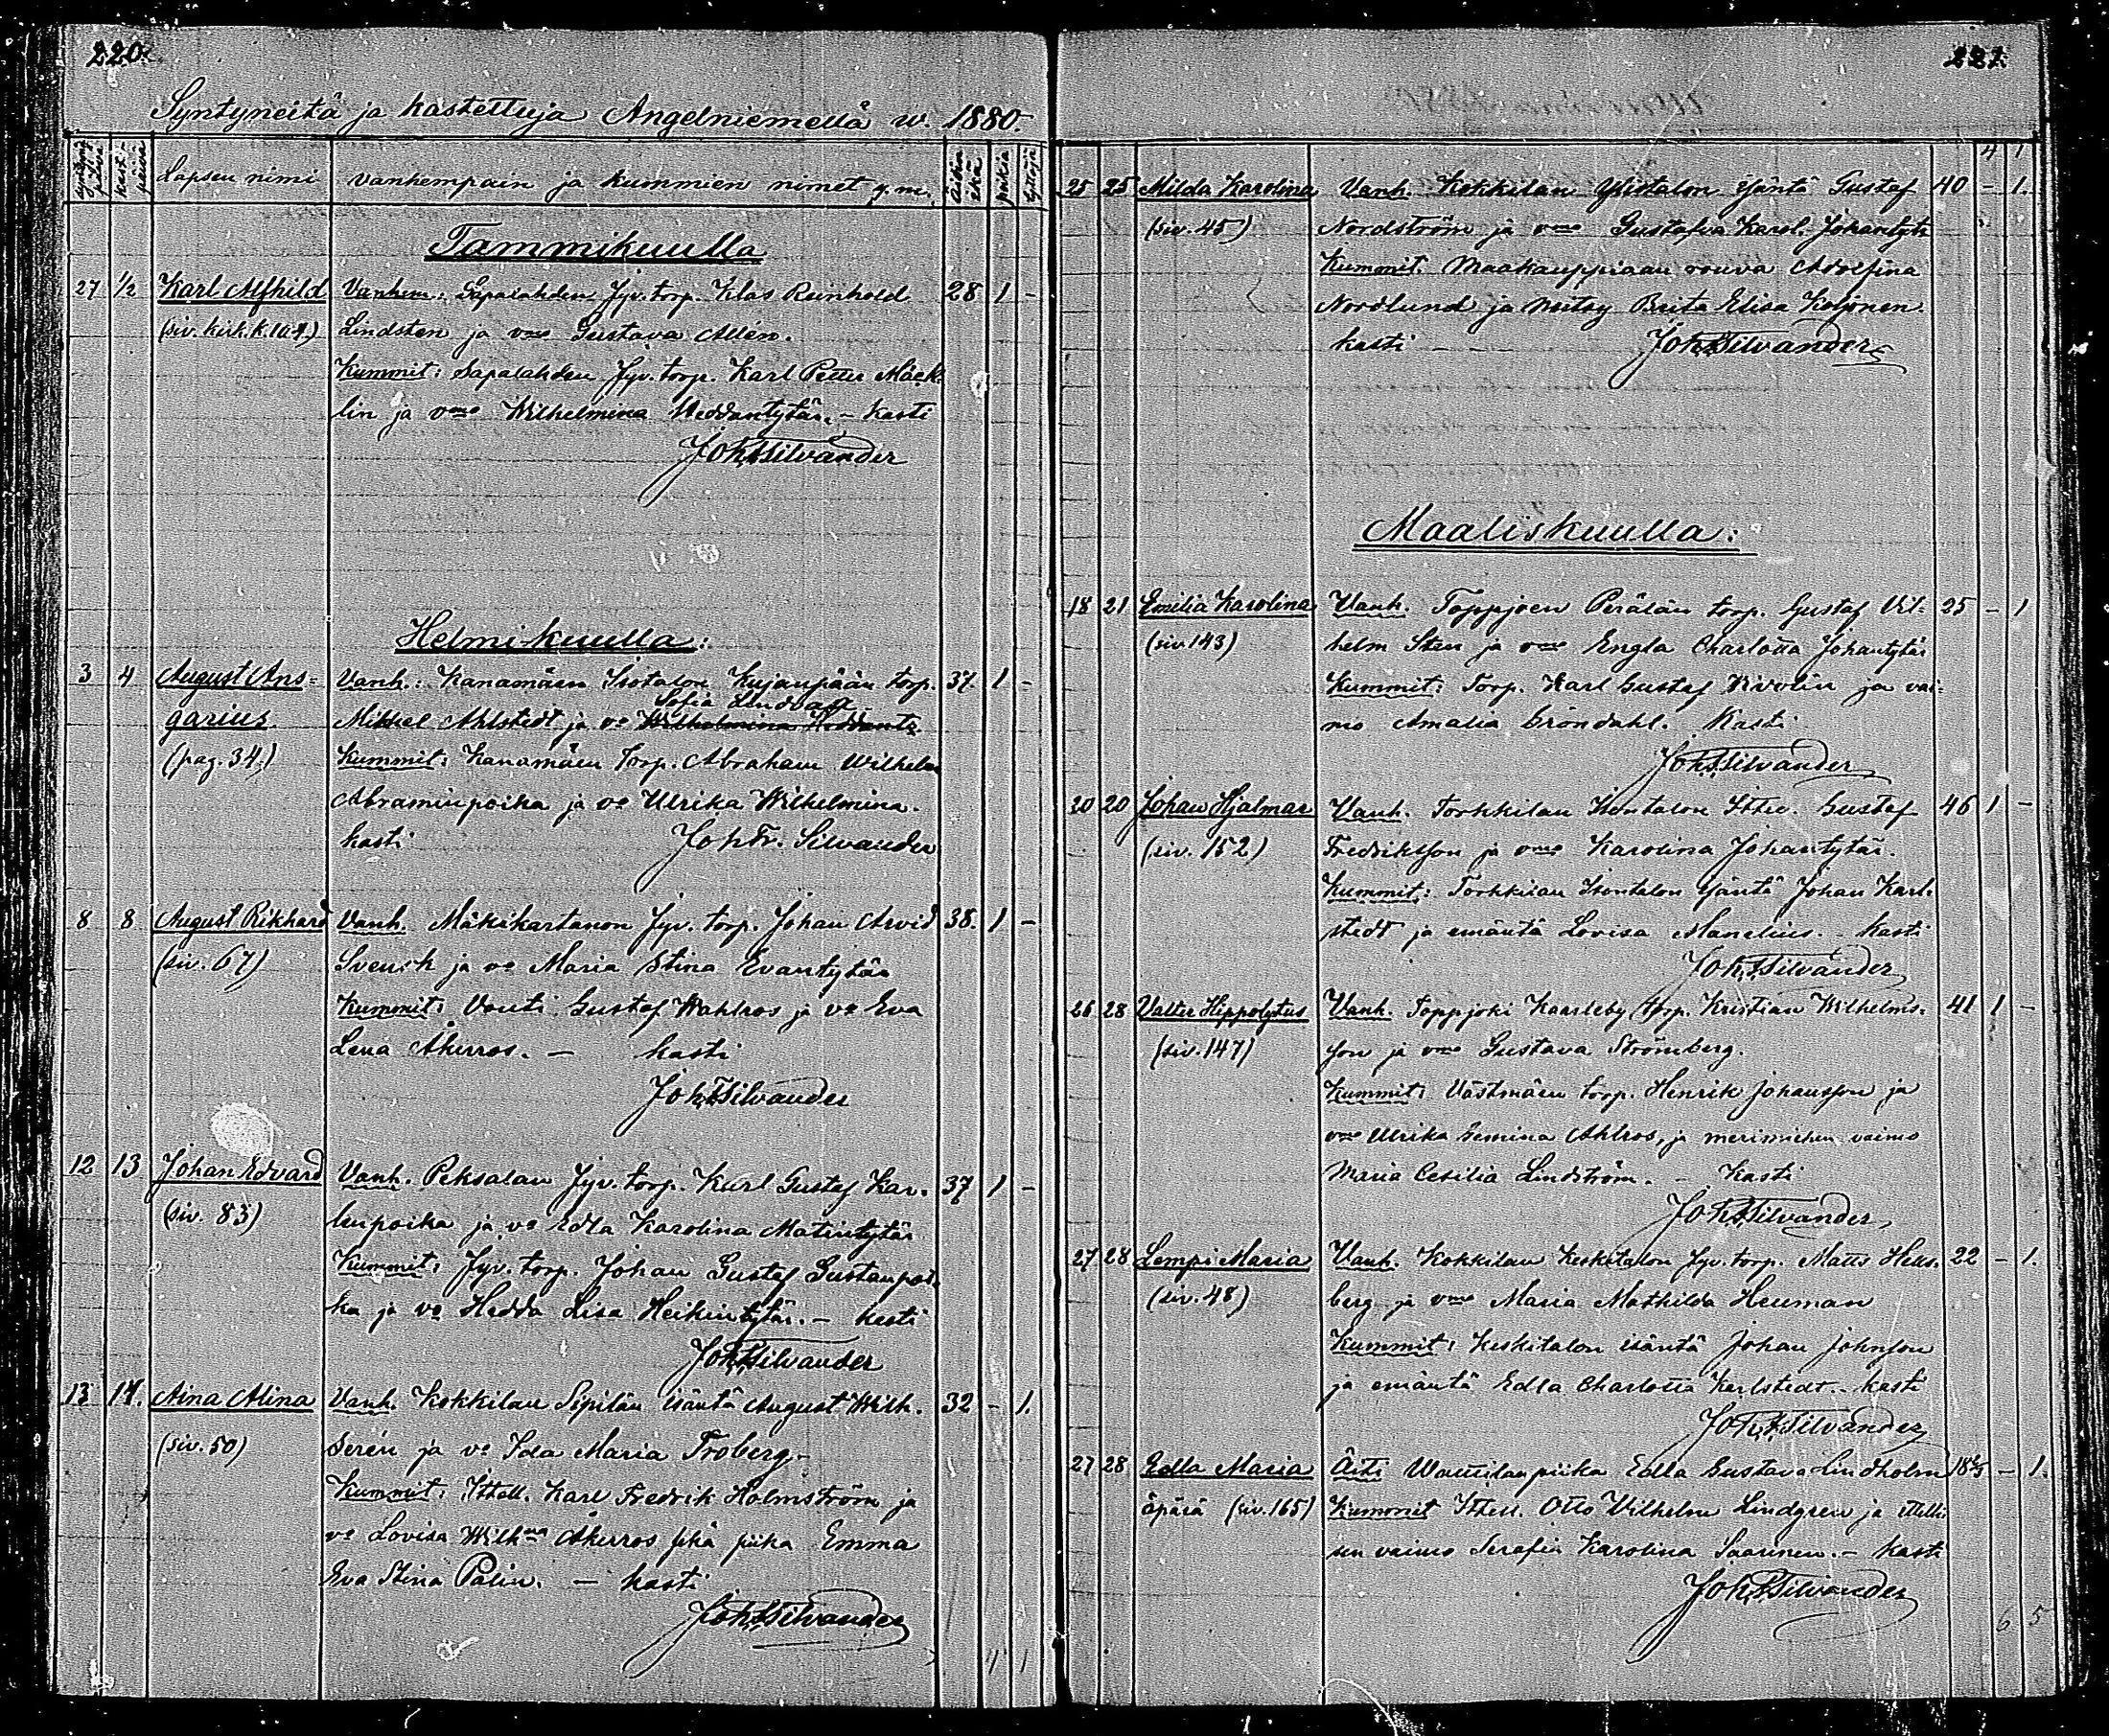 220.
Syntyneitä ja kastettuja Angelniemellä w. 1880.
syntymä päivä kast. päivä Lapsen nimi vanhempain ja kummien nimet y.m. Äitin ikä poikia tyttöjä
Tammikuulla
27 1/2 Karl Alfhild Vanhem: Sapalahden Jyv. torp. Klas Reinhold 28 1 -
(siv. kirk. k. 104.) Lindsten ja vmo Gustava Allén.
Kummit: Sapalahden Jyv. torp. Karl Petter Mäck-
lin ja vmo Wilhelmina Heddantytär. - Kasti
Joh. Fr. Silvander
Helmikuulla:
3 4 August Ans= Vanh.: Kanamäen Isotalon Kujanpään torp. 37. 1 -
Sofia Lindvall
garius. Mikkel Ahlstedt ja vo Wilhelmina Heddant.
(pag. 34.) Kummit: Kanamäen Torp. Abraham Wilhelm
Abraminpoika ja vo Ulrika Wilhelmina.
kasti Joh. Fr. Silvander
8 8 August Rikhard Vanh. Mäkikartanon Jyv. torp. Johan Arvid 38. 1 -
(siv. 67) Svensk ja vo Maria Stina Evantytär
Kummit: Vouti Gustaf Wahlros ja vo Eva
Lena Åkerros. - kasti
Joh. Fr. Silvander
12 13 Johan Edvard Vanh. Peksalan Jyv. torp. Karl Gustaf Kar- 37 1 -
(siv. 83) lenpoika ja vo Edla Karolina Matintytär
Kummit: Jyv. torp. Johan Gustaf Gustanpoi-
ka ja vo Hedda Lisa Heikintytär. - kasti
Joh. Fr. Silvander
13 14. Aina Alina Vanh. Kokkilan Sipilän isäntä August Wilh. 32 - 1.
(siv. 50) Serén ja vo Ida Maria Froberg.
Kummit: Ittell. Karl Fredrik Holmström ja
vo Lovisa Wilhna Åkerros sekä piika Emma
Eva Stina Palin. - kasti
Joh. Fr. Silvander
1 1
221.
4 1
25 25 Milda Karolina Vanh. Kokkilan Ylistalon Isäntä Gustaf 40 - 1.
(siv. 45) Nordström ja vmo Gustafva Karol. Johantytr
Kummit. Maakauppiaan rouva Adolfina
Nordlund ja neitsy Brita Elisa Koljonen.
kasti Joh. Fr. Silvander
Maaliskuulla:
18 21 Emilia Karolina Vanh. Toppjoen Perälän torp. Gustaf Vil- 25 - 1
(siv. 143) helm Sten ja vmo Engla Charlotta Johantytär
Kummit: Torp. Karl Gustaf Kivolin ja vai-
mo Amalia Gröndahl. Kasti
Joh. Fr. Silvander
20 20 Johan Hjalmar Vanh. Torkkilan Isontalon Gustaf 46 1 -
(siv. 152) Fredriksson ja vmo Karolina Johantytär.
Kummit: Torkkilan Isontalon Isäntä Johan Karl-
stedt ja emäntä Lovisa Manelius. - kasti
Joh. Fr. Silvander
26 28 Valter Hippolytus Vanh. Toppjoki Kaarleby torp. Kristian Wilhelms- 41 1 -
(siv. 147) son ja vmo Gustava Strömberg.
Kummit: Västmäen torp. Henrik Johansson ja
vmo Ulrika Gemina Ahlros, ja merimiehen vaimo
Maria Cesilia Lindström. - Kasti
Joh. Fr. Silvander
27 28 Lempi Maria Vanh. Kokkilan Keskitalon Jyv. torp. Matts Hells- 22 - 1.
(siv. 48) berg ja vmo Maria Mathilda Heuman
Kummit: Keskitalon isäntä Johan Johnsson
ja emäntä Edla Charlotta Karlstedt. - kasti
Joh. Fr. Silvander
27 28 Edla Maria Äiti piika Edla Gustava Lindholm - 1.
äpärä (siv. 165) Kummit Ittell. Otto Vilhelm Lindgren ja ittelli-
sen vaimo Serafia Karolina Saarinen. - kasti
Joh. Fr. Silvander
6 5